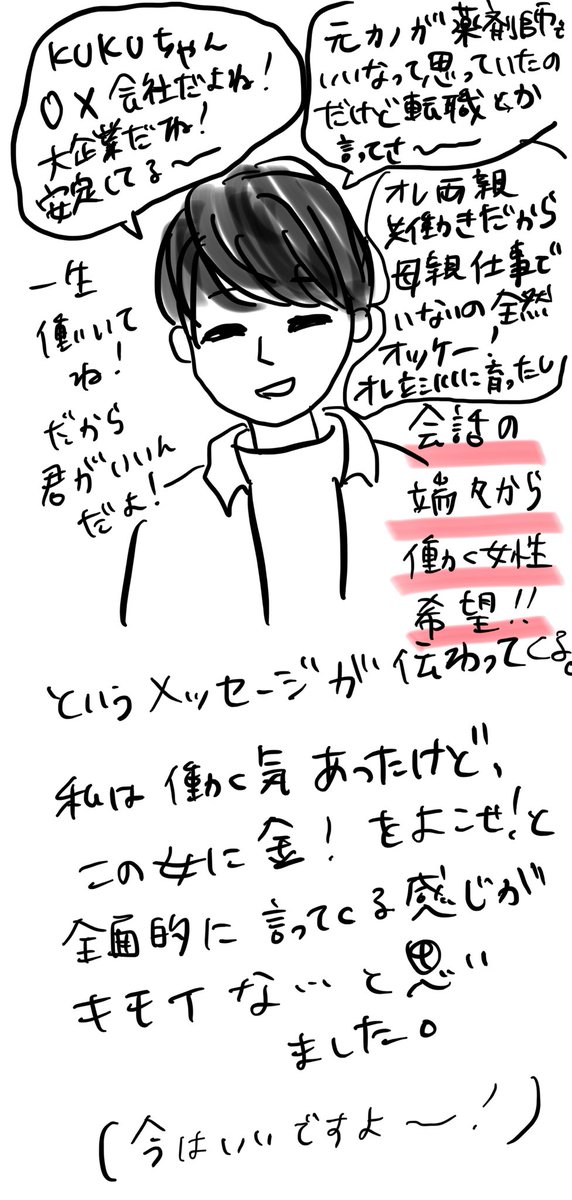 KUKUちゃん
〇×会社だよね!
大企業だね!
安定してる〜
元カノが薬剤師で
いいなって思っていたの
だけど転職とか
言ってさ〜
オレ両親
共働きだから
母親仕事で
いないの全然
オッケー!
オレ立派に育ったし
一生
働いて
ね!
だから
君がいいん
だよ!
会話の
端々から
働く女性
希望!!
というメッセージが伝わってくる。
私は働く気あったけど、
この女に金!をよこせ!と
全面的に言ってくる感じが
キモイな…と思い
ました。
(今はいいですよ〜!)